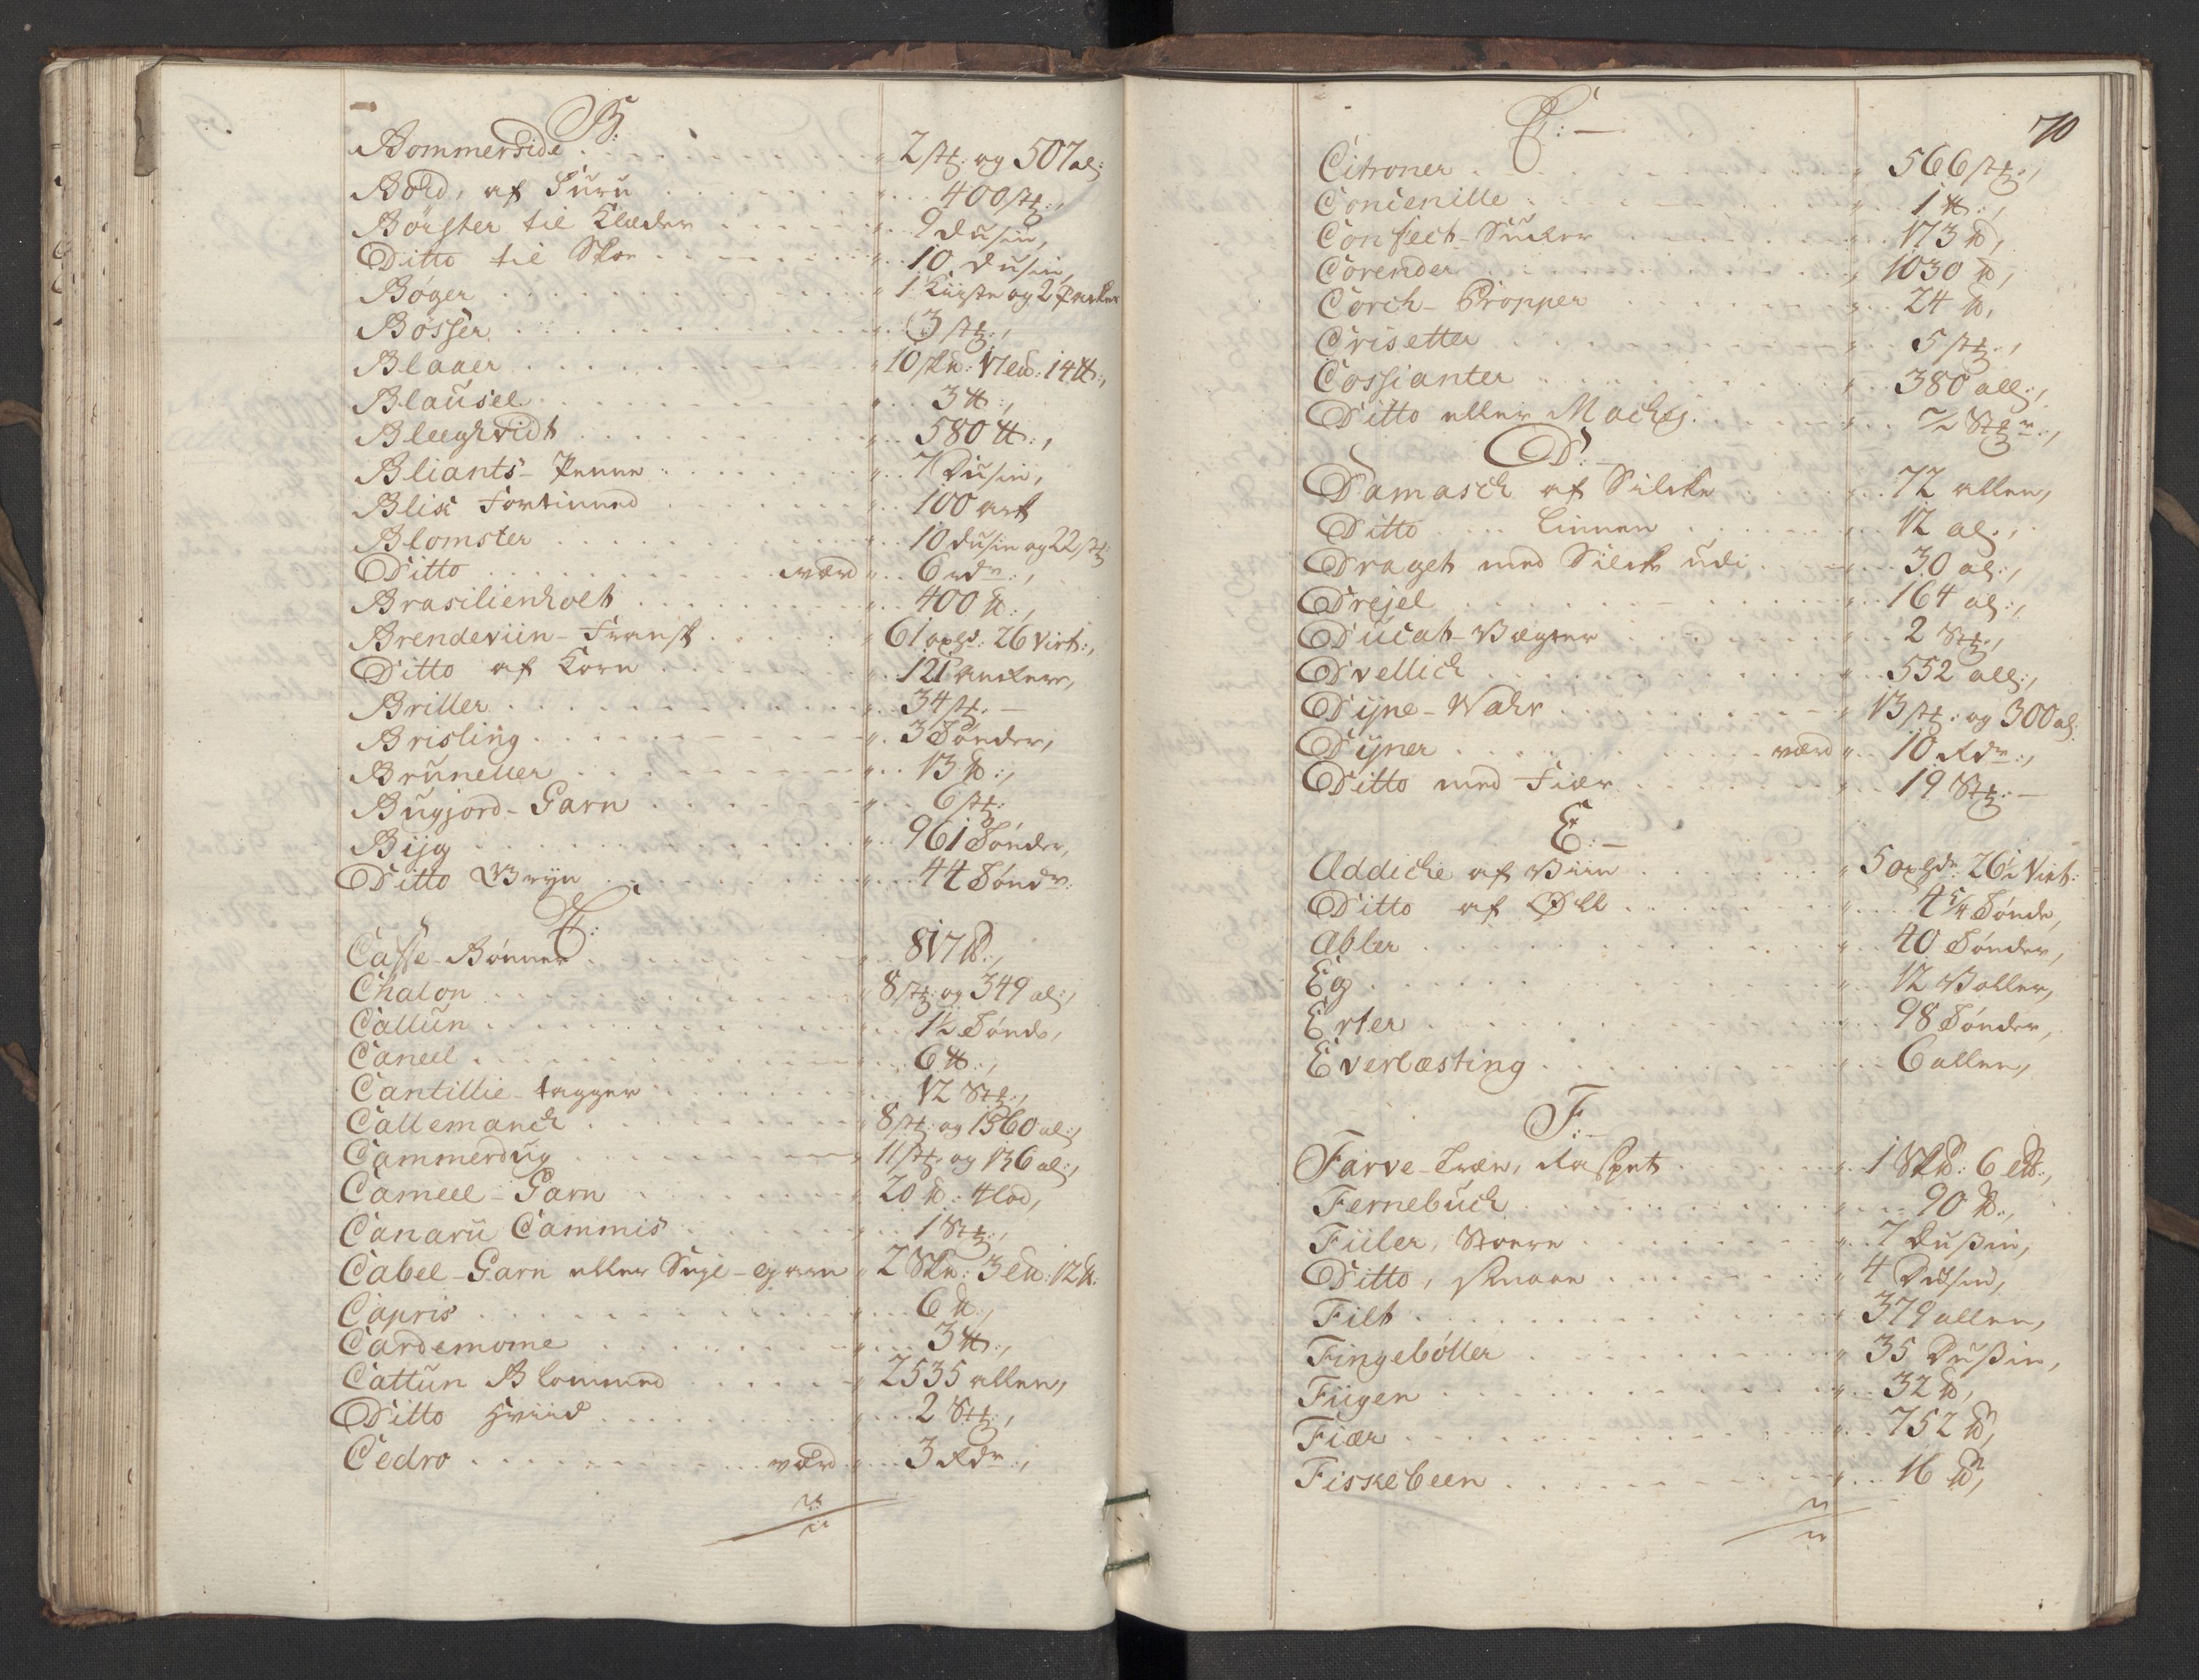 B:
Bommerside 2 stk: og 507 al:
Bord, af Furu 400 stk:,
Børster til Klæder 9 dusin,
Ditto til Skoe 10 dusin,
Bøger 1 Kiiste og 2 Pakker
Bösser 3 stk:,
Blaaer 10 sk℔: 17 L℔: 14 ℔:,
Blaüsel 3 ℔:,
Bleeghvidt 580 ℔:,
Bliants-Penne 7 Dusin,
Blik Fortinned 100 ark
Blomster 10 dusin og 22 stk:
Ditto værd 6 rdr:,
Brasilienholt 400 ℔:,
Brendeviin-Fransk 61 oxhd: 26 Virt:,
Ditto af Korn 121 Ankere,
Briller 34 stk.
Brisling 3 Tønder,
Bruneller 13 ℔:,
Bugjord-Garn 6 stk:
Bijg 961 Tønder,
Ditto Gryn 44 Tøndr:
C:
Caffe-Bønner 817 ℔:,
Chalon 8 stk: og 349 al:,
Callün 1½ Tønde,
Caneel 6 ℔:,
Cantillie-tagger 12 Stk:,
Callemanck 8 stk: og 1360 al:,
Cammerdug 11 stk: og 136 al:,
Cameel-Garn 20 ℔: 4 lod,
Canarü Cammis 1 Stk:,
Cabel-Garn eller Seyl-garn 2 Sk℔: 3 L℔: 12 ℔:
Capris 6 ℔:,
Cardemome 3 ℔:,
Cattün Blommed 2535 allen,
Ditto Hviid 2 Stk:,
Cedro værd 3 Rdr:,
70
C:
Citroner 566 stk:,
Concenille 1 ℔:,
Confect-Sucker 173 ℔,
Corender 1030 ℔,
Corck-Propper 24 ℔,
Crisetter 5 stk:,
Cossianter 380 all:,
Ditto eller
D:
Damasck af Silcke 72 allen,
Ditto Linnen 12 al:,
Draget med Silcke udi 30 al:,
Drejel 164 al:,
Dücat-Vegter 2 Stk:,
Dvellick 552 all:,
Dijne-Vahr 13 stk: og 300 al:
Dijner værd 10 Rdr:,
Ditto med Fiær 19 Stk:
E:
Æddicke af Viin 5 oxhdr: 26½ Virt:
Ditto af Øll 4¼ Tønde,
Æbler 40 Tønder,
Eg 12 Voller,
Erter 98 Tønder,
Everlæsting 6 allen,
F:
Farve-Træe, Raspet 1 Sk℔: 6 L℔:,
Fernebück 90 ℔:,
Fiiler, Stoere 7 Dusin,
Ditto, smaae 4 Dusin,
Filt 379 allen,
Fingebøller 35 Dusin,
Fiigen 32 ℔,
Fiær 752 ℔,
Fiskebeen 16 ℔,